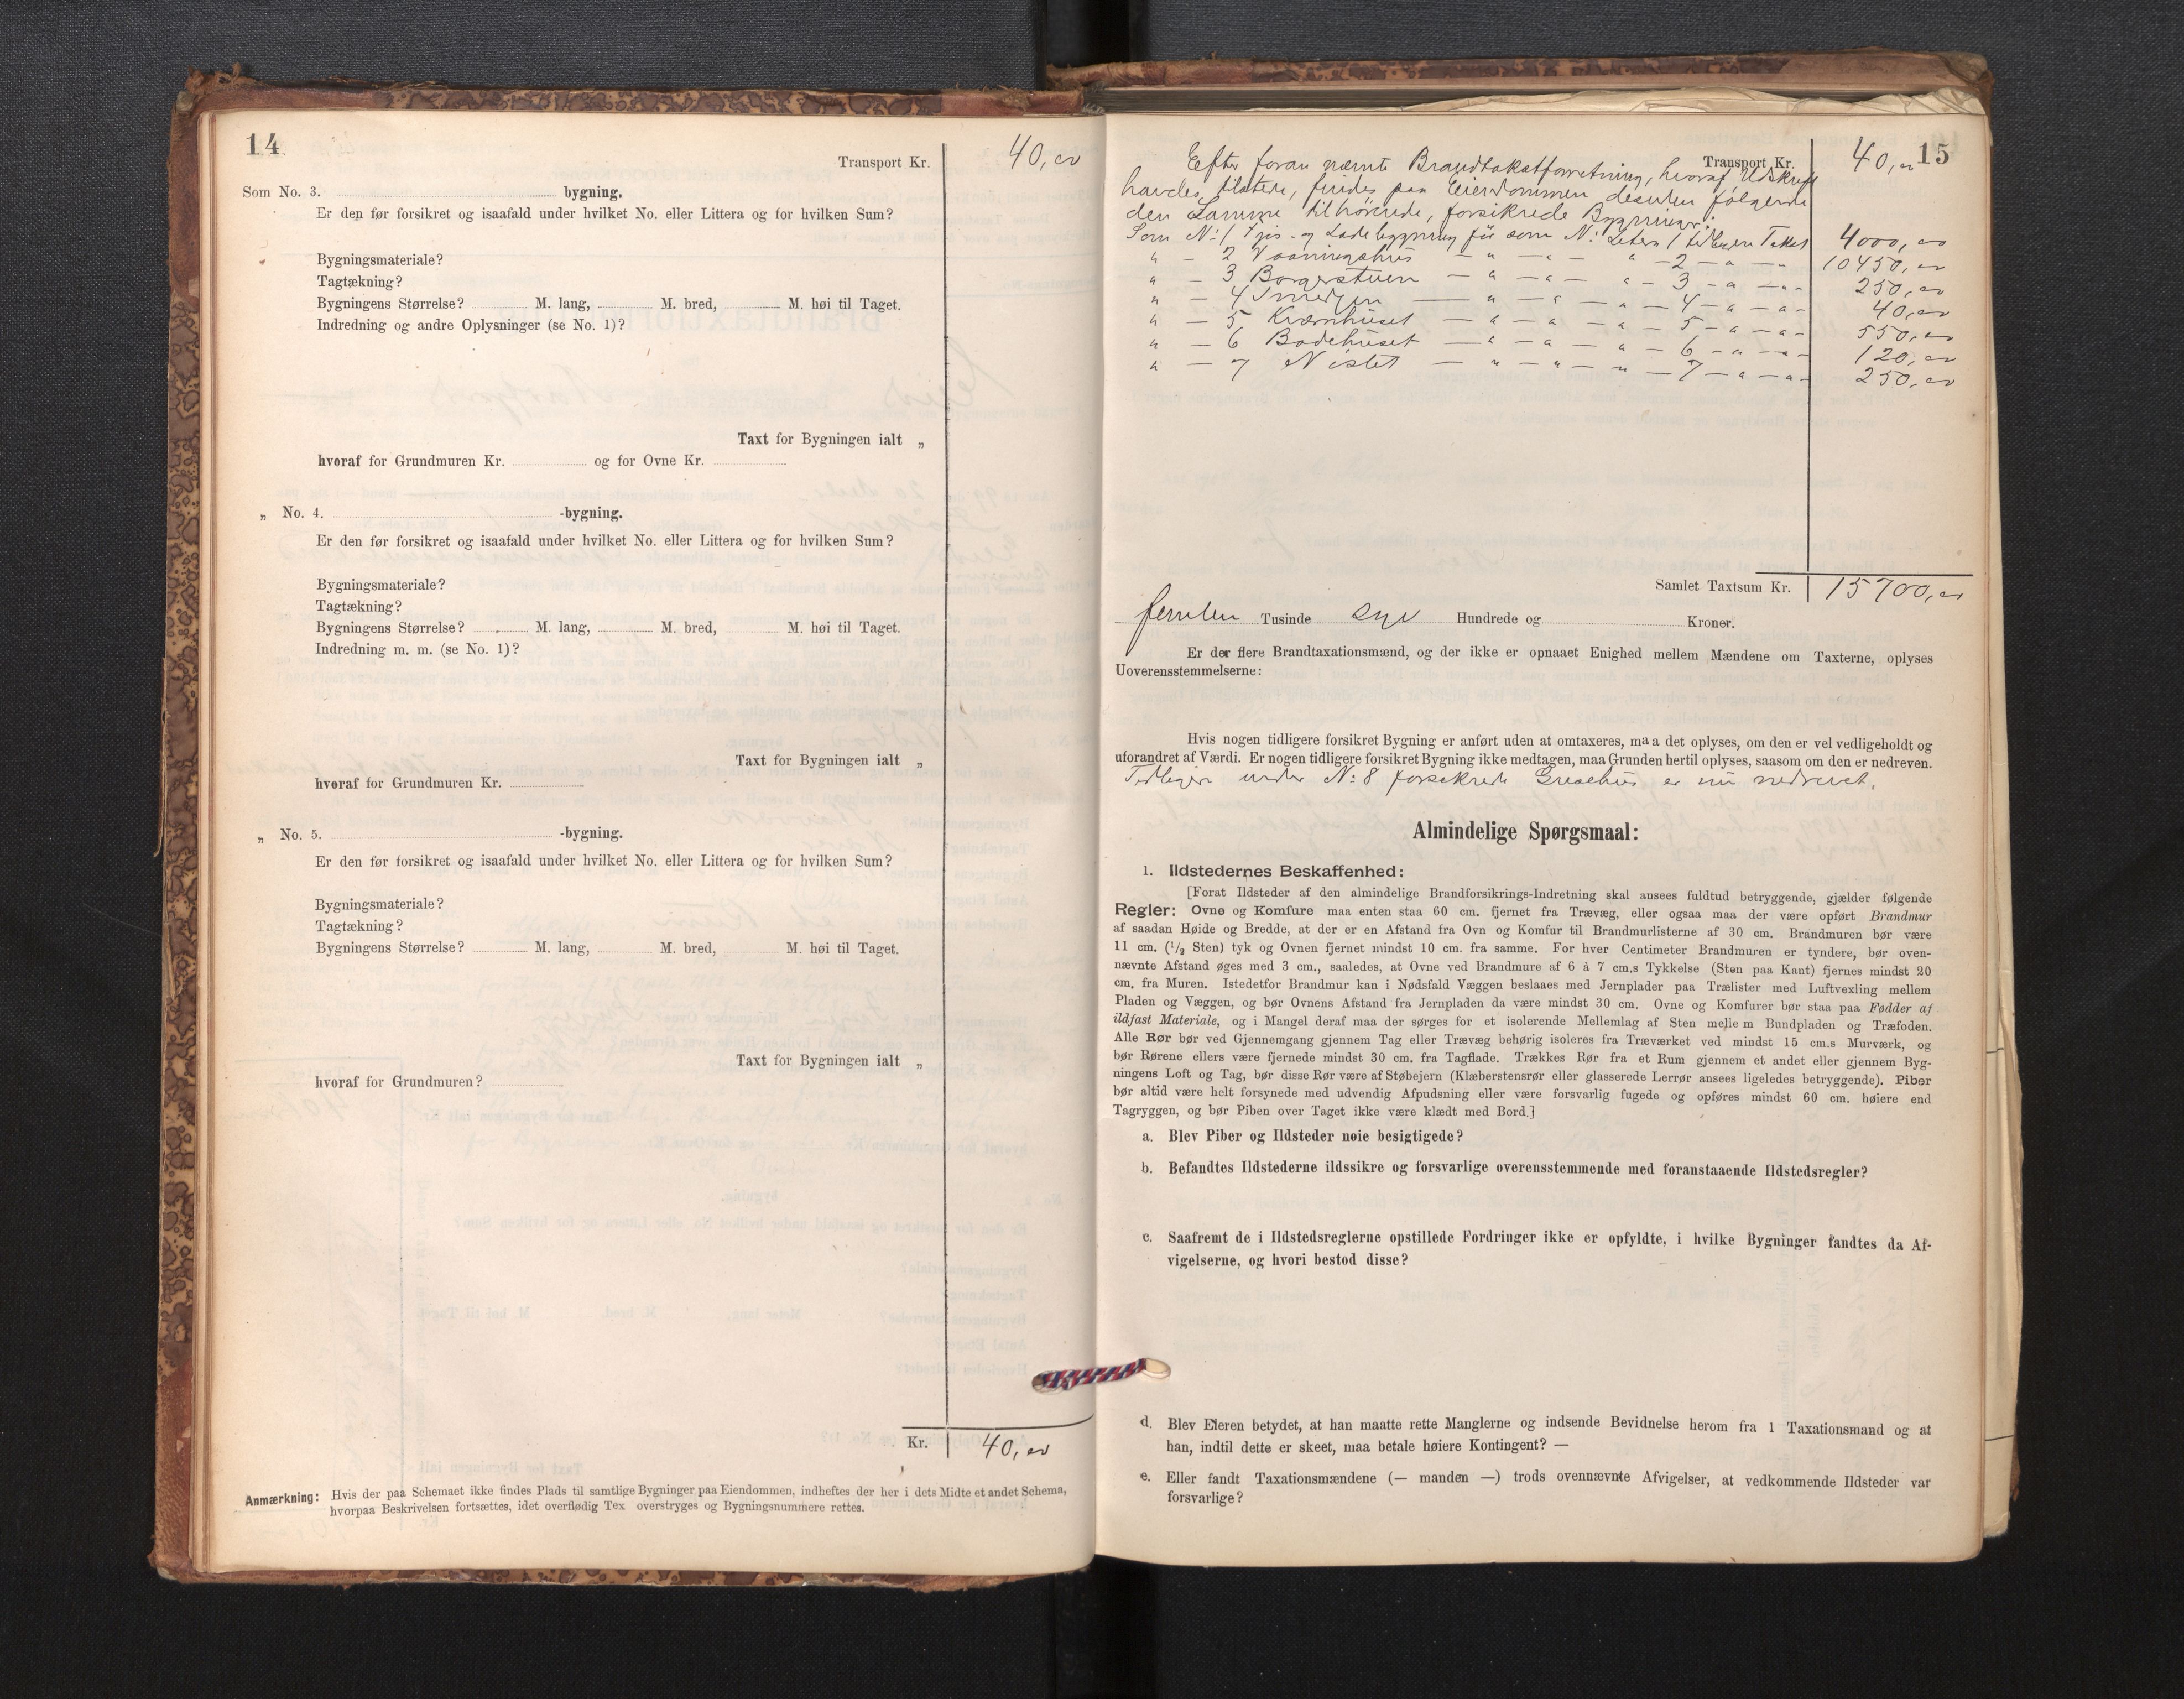 14
Transport Kr. 40, „
Som No. 3. bygning.
Er den før forsikret og isaafald under hvilket No. eller Littera og for hvilken Sum?
Bygningsmateriale?
Tagtækning?
Bygningens Størrelse? M. lang, M. bred, M. høi til Taget.
Indredning og andre Oplysninger (se No. 1)?
Taxt for Bygningen ialt „
hvoraf for Grundmuren Kr. og for Ovne Kr.
„ No. 4. -bygning.
Er den før forsikret og isaafald under hvilket No. eller Littera og for hvilken Sum?
Bygningsmateriale?
Tagtækning?
Bygningens Størrelse? M. lang, M. bred, M. høi til Taget.
Indredning m. m. (se No. 1)?
Taxt for Bygningen ialt „
hvoraf for Grundmuren Kr.
„ No. 5. -bygning.
Er den før forsikret og isaafald under hvilket No. eller Littera og for hvilken Sum?
Bygningsmateriale?
Tagtækning?
Bygningens Størrelse? M. lang, M. bred, M. høi til Taget.
Taxt for Bygningen ialt „
hvoraf for Grundmuren?
Kr. 40, „
Anmærkning: Hvis der paa Schemaet ikke findes Plads til samtlige Bygninger paa Eiendommen, indheftes der her i dets Midte et andet Schema,
hvorpaa Beskrivelsen fortsættes, idet overflødig Tex overstryges og Bygningsnummere rettes.
15
Transport Kr. 40, „
Efter foran nævnte Brandtakstforretning, hvoraf Udskrift
havdes tilstede, findes paa Eiendommen desuden følgende
den Samme tilhørende, forsikrede Bygninger:
Som N: 1 Fjøs- og Ladebygning før som N: Litera 1 Takst 4000, „
„ — 2 Vaaningshus — „ — „ — „ — 2 — „ — „ 10450, „
„ — 3 Borgestuen — „ — „ — „ — 3 — „ — „ 250, „
„ — 4 Smedjen — „ — „ — „ — 4 — „ — „ 40, „
„ — 5 Kværnhuset — „ — „ — „ — 5 — „ — „ 550, „
„ — 6 Badehuset — „ — „ — „ — 6 — „ — „ 120, „
„ — 7 Nistet — „ — „ — „ — 7 — „ — „ 250, „
Samlet Taxtsum Kr. 15700, „
femten Tusinde syv Hundrede og Kroner.
Er der flere Brandtaxationsmænd, og der ikke er opnaaet Enighed mellem Mændene om Taxterne, oplyses
Uoverensstemmelserne:
Hvis nogen tidligere forsikret Bygning er anført uden at omtaxeres, maa det oplyses, om den er vel vedligeholdt og
uforandret af Værdi. Er nogen tidligere forsikret Bygning ikke medtagen, maa Grunden hertil oplyses, saasom om den er nedreven.
Tidligere under N: 8 forsikrede Gruehus er nu nedrevet.
Almindelige Spørgsmaal:
1. Ildstedernes Beskaffenhed:
[Forat Ildsteder af den almindelige Brandforsikrings-Indretning skal ansees fuldtud betryggende, gjælder følgende
Regler: Ovne og Komfure maa enten staa 60 cm. fjernet fra Trævæg, eller ogsaa maa der være opført Brandmur
af saadan Høide og Bredde, at der er en Afstand fra Ovn og Komfur til Brandmurlisterne af 30 cm. Brandmuren bør være
11 cm. (1/2 Sten) tyk og Ovnen fjernet mindst 10 cm. fra samme. For hver Centimeter Brandmuren er tyndere, bør oven-
nævnte Afstand øges med 3 cm., saaledes, at Ovne ved Brandmure af 6 à 7 cm.s Tykkelse (Sten paa Kant) fjernes mindst 20
cm. fra Muren. Istedetfor Brandmur kan i Nødsfald Væggen beslaaes med Jernplader paa Trælister med Luftvexling mellem
Pladen og Væggen, og bør Ovnens Afstand fra Jernpladen da være mindst 30 cm. Ovne og Komfurer bør staa paa Fødder af
ildfast Materiale, og i Mangel deraf maa der sørges for et isolerende Mellemlag af Sten mellem Bundpladen og Træfoden.
Alle Rør bør ved Gjennemgang gjennem Tag eller Trævæg behørig isoleres fra Træværket ved mindst 15 cm.s Murværk, og
bør Rørene ellers være fjernede mindst 30 cm. fra Tagflade. Trækkes Rør fra et Rum gjennem et andet eller gjennem Byg-
ningens Loft og Tag, bør disse Rør være af Støbejern (Klæberstensrør eller glasserede Lerrør ansees ligeledes betryggende). Piber
bør altid være helt forsynede med udvendig Afpudsning eller være forsvarlig fugede og opføres mindst 60 cm. høiere end
Tagryggen, og bør Piben over Taget ikke være klædt med Bord.]
a. Blev Piber og Ildsteder nøie besigtigede?
b. Befandtes Ildstederne ildssikre og forsvarlige overensstemmende med foranstaaende Ildstedsregler?
c. Saafremt de i Ildstedsreglerne opstillede Fordringer ikke er opfyldte, i hvilke Bygninger fandtes da Af-
vigelserne, og hvori bestod disse?
d. Blev Eieren betydet, at han maatte rette Manglerne og indsende Bevidnelse herom fra 1 Taxationsmand og at
han, indtil dette er skeet, maa betale høiere Kontingent? —
e. Eller fandt Taxationsmændene (— manden —) trods ovennævnte Afvigelser, at vedkommende Ildsteder var
forsvarlige?